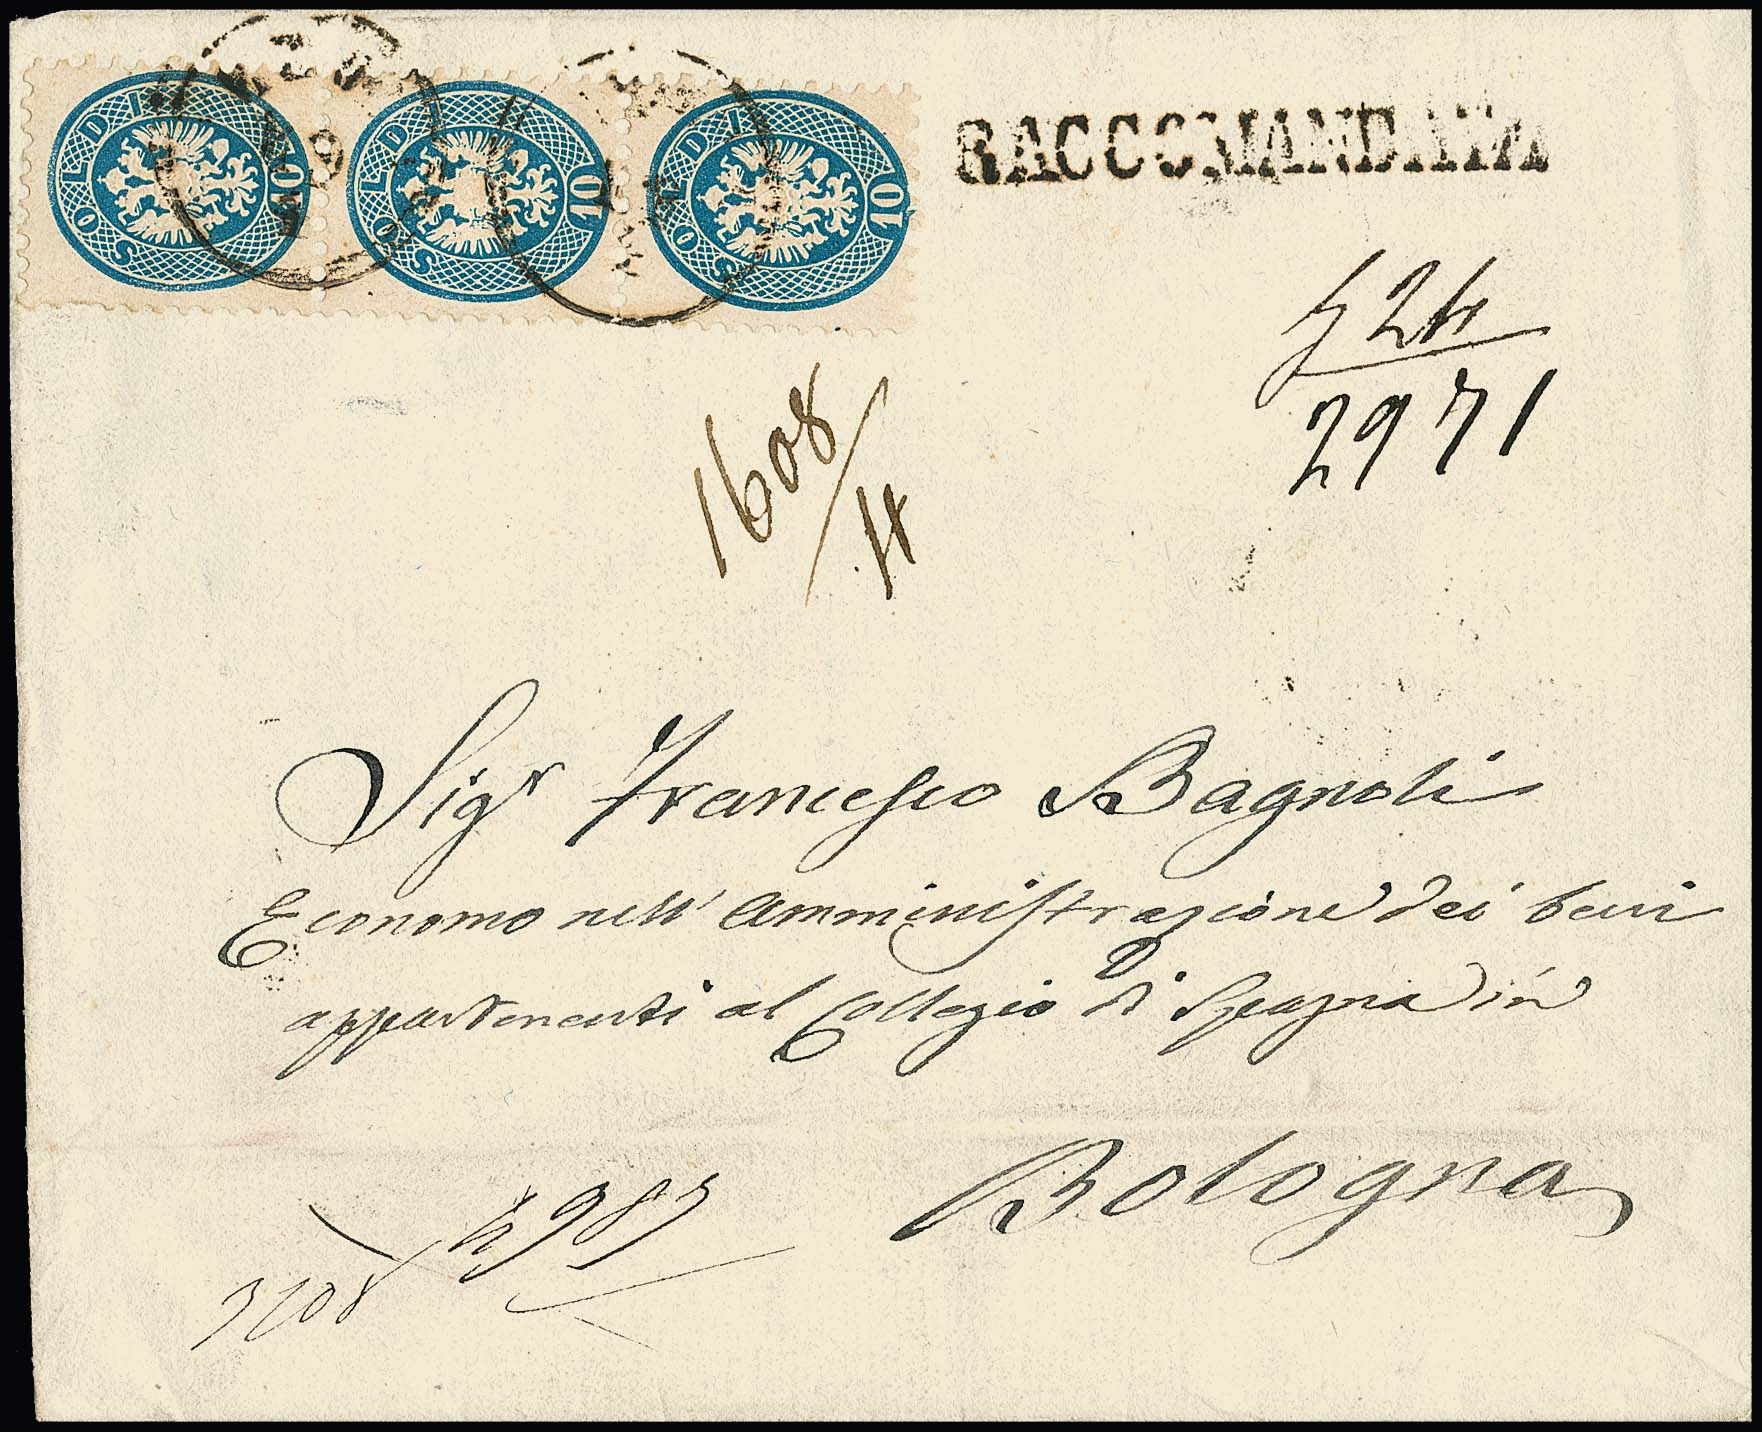 SOLDI 10 SOLDI 10 SOLDI 10
RACCOMANDATA
2971
1608
Sigr Francesco Bagnoli
Economo nell' Amministrazione dei beni
appartenenti al Collegio di Spagna in
Bologna